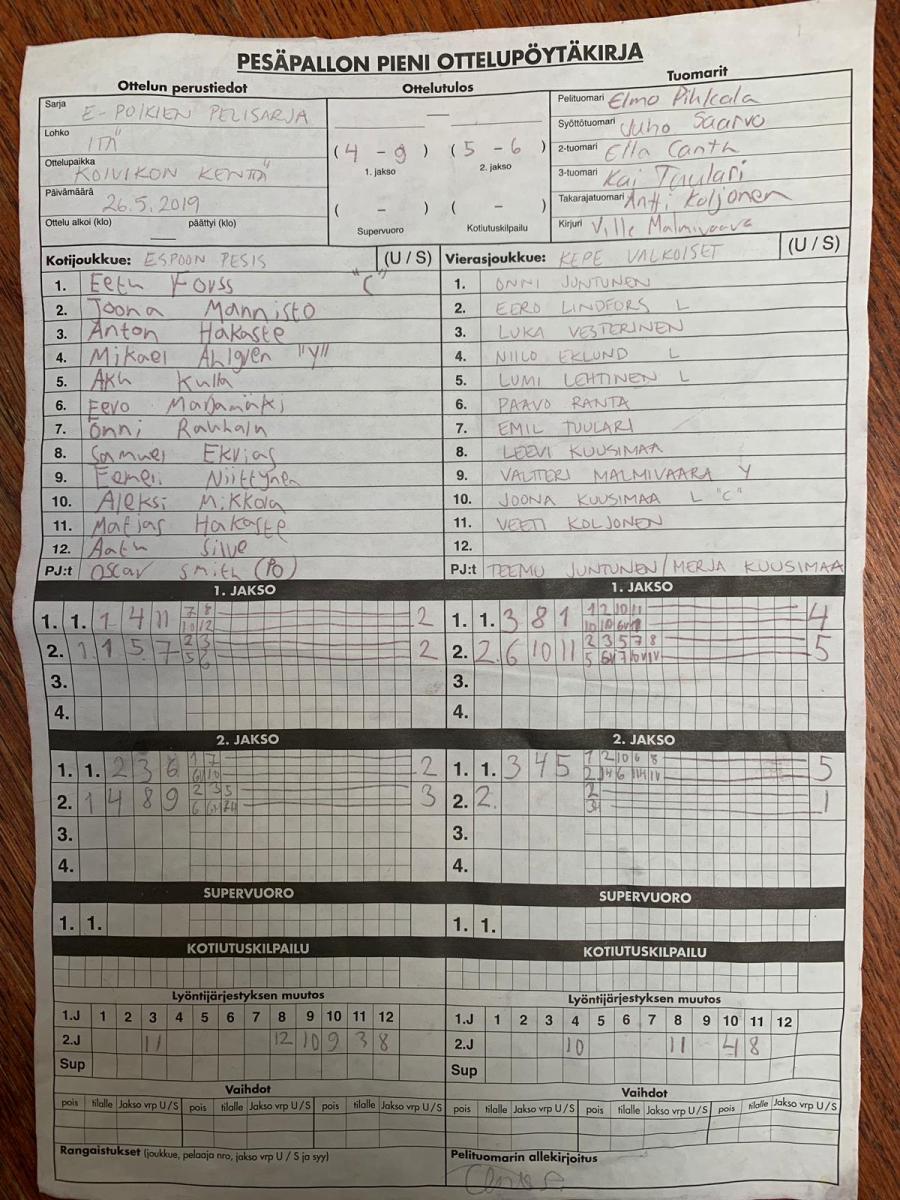 PESÄPALLON PIENI OTTELUPÖYTÄKIRJA
Ottelun perustiedot
Sarja E-POIKIEN PELISARJA
Lohko ITÄ
Ottelupaikka KOIVIKON KENTÄ
Päivämäärä 26.5.2019
Ottelu alkoi (klo) — päättyi (klo)
Ottelutulos
(4 - 9) (5 - 6)
1. jakso 2. jakso
( - ) ( - )
Supervuoro Kotiutuskilpailu
Tuomarit
Pelituomari Elmo Pihkala
Syöttötuomari Juho Saarvo
2-tuomari Ella Canth
3-tuomari Kai Tuulari
Takarajatuomari Antti Koljonen
Kirjuri Ville Malmivaara
Kotijoukkue: ESPOON PESIS (U / S)
1. Eetu Forss "C"
2. Joona Mannisto
3. Anton Hakaste
4. Mikael Ahlgren "Y"
5. Kulla
6. Eero Marjamäki
7. Onni Rauhala
8. Samuel
9. Eemeli Niittynen
10. Aleksi Mikkola
11. Matias Hakaste
12.
PJ:t Oscar Smith (PO)
Vierasjoukkue: KEPE VALKOISET (U / S)
1. ONNI JUNTUNEN
2. EERO LINDFORS L
3. LUKA VESTERINEN
4. NIILO EKLUND L
5. LUMI LEHTINEN L
6. PAAVO RANTA
7. EMIL TUULARI
8. LEEVI KUUSIMAA
9. VALTTERI MALMIVAARA Y
10. JOONA KUUSIMAA L "C"
11. VEETI KOLJONEN
12.
PJ:t TEEMU JUNTUNEN/MERJA KUUSIMAA
1. JAKSO
1. 1. 1 4 11 7 8 10 12 2
2. 1. 1 5 7 2 3 5 6 2
3.
4.
1. JAKSO
1. 1. 3 8 1 1 2 10 11 4
2. 2. 6 10 11 2 3 5 7 8 5
3.
4.
2. JAKSO
1. 1. 2 3 6 1 7 2
2. 1 4 8 9 2 3 5 3
3.
4.
2. JAKSO
1. 1. 3 4 5 1 2 10 6 8 5
2. 2. 2 3 1
3.
4.
SUPERVUORO
1. 1.
SUPERVUORO
1. 1.
KOTIUTUSKILPAILU
KOTIUTUSKILPAILU
Lyöntijärjestyksen muutos
1.J 1 2 3 4 5 6 7 8 9 10 11 12
2.J 11 12 10 9 3 8
Sup
Lyöntijärjestyksen muutos
1.J 1 2 3 4 5 6 7 8 9 10 11 12
2.J 10 11 4 8
Sup
Vaihdot
pois tilalle Jakso vrp U / S pois tilalle Jakso vrp U / S pois tilalle Jakso vrp U / S
Vaihdot
pois tilalle Jakso vrp U / S pois tilalle Jakso vrp U / S pois tilalle Jakso vrp U / S
Rangaistukset (joukkue, pelaaja nro, jakso vrp U / S ja syy)
Pelituomarin allekirjoitus